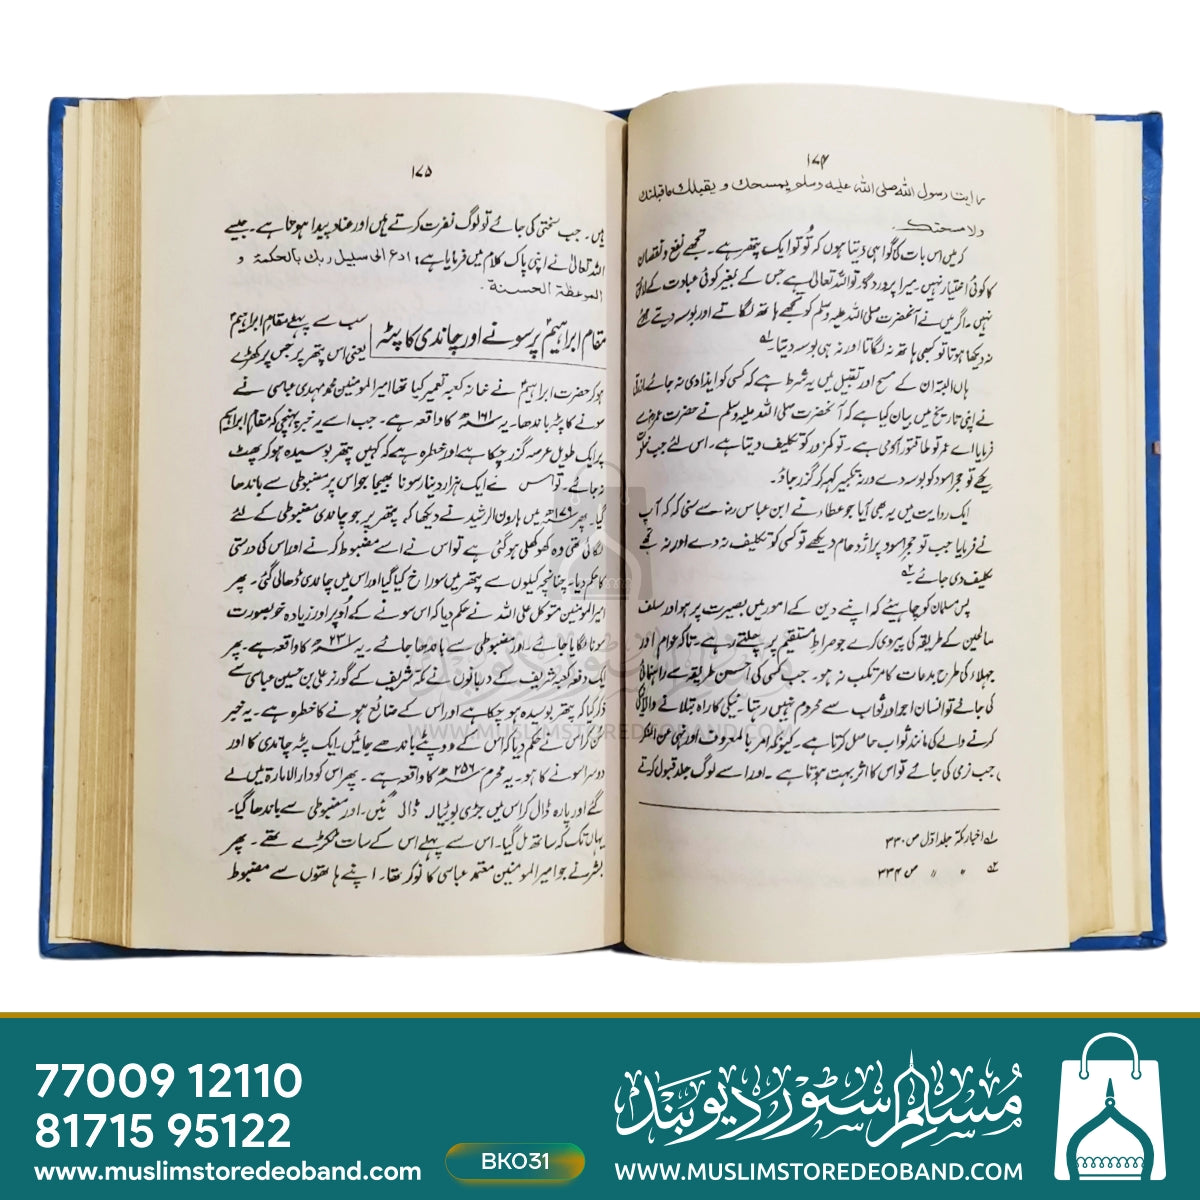 ۱۷۴
رایت رسول الله صلی الله علیه وسلم یمسحك و یقبلك ماقبلتك
ولا مسحتك.
کہ میں اس بات کی گواہی دیتا ہوں کہ تُو تو ایک پتھر ہے۔ تجھے نفع و نقصان
کا کوئی اختیار نہیں۔ میرا پروردگار تو اللہ تعالیٰ ہے جس کے بغیر کوئی عبادت کے لائق
نہیں۔ اگر میں نے آنحضرت صلی اللہ علیہ وسلم کو تجھے ہاتھ لگاتے اور بوسہ دیتے ہوئے
نہ دیکھا ہوتا تو کبھی ہاتھ نہ لگاتا اور نہ ہی بوسہ دیتا۔
ہاں البتہ ان کے مسح اور تقبیل میں یہ شرط ہے کہ کسی کو ایذا دی نہ جائے ازرقی
نے اپنی تاریخ میں بیان کیا ہے کہ آنحضرت صلی اللہ علیہ وسلم نے حضرت عمر سے
فرمایا اے عمر تو طاقتور آدمی ہے۔ تو کمزور کو تکلیف دیتا ہے۔ اس لئے جب خلوت
دیکھے تو حجر اسود کو بوسہ دے ورنہ تکبیر کہہ کر گزر جاؤ۔
ایک روایت میں یہ بھی آیا جو عطاء نے ابن عباس رضہ سے سنی کہ کہ آپ
نے فرمایا جب تو حجر اسود پر اژدھام دیکھے تو کسی کو تکلیف نہ دے اور نہ تجھے
تکلیف دی جائے۔
پس مسلمان کو چاہیئے کہ اپنے دین کے امور میں بصیرت پر ہو اور سلف
صالحین کے طریقہ کی پیروی کرے جو صراط مستقیم پر چلتے رہے۔ تاکہ عوام اور
جہلاء کی طرح بدعات کا مرتکب نہ ہو۔ جب کسی کی احسن طریقے سے راہنمائی
کی جائے تو انسان اجر اور ثواب سے محروم نہیں رہتا۔ نیکی کا راہ بتلانے والا نیکی
کرنے والے کی مانند ثواب حاصل کرتا ہے۔ کیونکہ امر بالمعروف اور نہی عن المنکر
میں جب نرمی کی جائے تو اس کا اثر بہت ہوتا ہے۔ اور اسے لوگ جلد قبول کرتے
۱؎ اخبار مکۃ جلد اوّل ص ۳۳۰
۲؎ " " ص ۳۳۴
۱۷۵
ہیں۔ جب سختی کی جائے تو لوگ نفرت کرتے ہیں اور عناد پیدا ہوتا ہے۔ جیسے
اللہ تعالیٰ نے اپنی پاک کلام میں فرمایا ہے: ادع الی سبیل ربك بالحکمة و
الموعظة الحسنة۔
مقام ابراہیمؑ پر سونے اور چاندی کا پٹہ
سب سے پہلے مقام ابراہیمؑ
یعنی اس پتھر پر جس پر کھڑے
ہو کر حضرت ابراہیمؑ نے خانہ کعبہ تعمیر کیا تھا امیر المومنین محمد مہدی عباسی نے
سونے کا پٹہ باندھا۔ یہ ۱۶۱ھ کا واقعہ ہے۔ جب اسے یہ خبر پہنچی کہ مقام ابراہیم
پر ایک طویل عرصہ گزر چکا ہے اور خطرہ ہے کہ کہیں پتھر بوسیدہ ہو کر پھٹ
نہ جائے۔ تو اس نے ایک ہزار دینار سونا بھیجا جو اس پر مضبوطی سے باندھا
گیا۔ پھر ۱۷۹ھ میں ہارون الرشید نے دیکھا کہ پتھر پر جو چاندی مضبوطی کے لئے
لگائی تھی وہ کھوکھلی ہو گئی ہے تو اس نے اسے مضبوط کرنے اور اس کی درستی
کا حکم دیا۔ چنانچہ کیلوں سے پتھر میں سوراخ کیا گیا اور اس میں چاندی ڈھالی گئی۔ پھر
امیر المومنین متوکل علی اللہ نے حکم دیا کہ اس سونے کے اوپر اور زیادہ خوبصورت
سونا لگایا جائے۔ اور مضبوطی سے باندھا جائے۔ یہ کا واقعہ ہے۔ پھر
ایک دفعہ کعبہ شریف کے دربانوں نے مکہ شریف کے گورنر علی بن حسین عباسی سے
ذکر کیا کہ پتھر بوسیدہ ہو چکا ہے اور اس کے ضائع ہونے کا خطرہ ہے۔ یہ خبر
سن کر اس نے حکم دیا کہ اس کے دو پٹے باندھے جائیں ایک پٹہ چاندی کا اور
دوسرا سونے کا ہو۔ یہ محرم ۲۵۶ھ کا واقعہ ہے۔ پھر اس کو دارالامارۃ میں لے
گئے اور پارہ ڈال کر اس میں جڑی بوٹیاں ڈالی گئیں۔ اور مضبوطی سے باندھا گیا۔
یہاں تک کہ ساتھ مل گیا۔ اس سے پہلے اس کے سات ٹکڑے تھے۔ پھر
بشر نے جو امیر المومنین معتمد عباسی کا نوکر تھا۔ اپنے ہاتھوں سے مضبوط
مسلم سٹور دیوبند
WWW.MUSLIMSTOREDEOBAND.COM
77009 12110
81715 95122
www.muslimstoredeoband.com
BK031
مسلم سٹور دیوبند
WWW.MUSLIMSTOREDEOBAND.COM